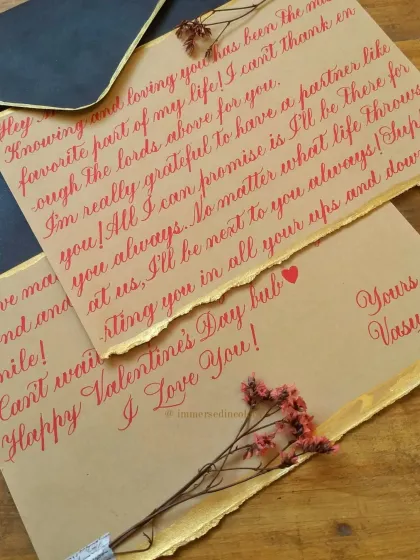 Hey
Knowing and loving you has been the
favorite part of my life! I can't thank en
-ough the lords above for you.
I'm really grateful to have a partner like
you! All I can promise is I'll be there for
you always. No matter what life throws
at us, I'll be next to you always! Sup
-rting you in all your ups and dow
ve ma
nd and
mile!
Can't wait
Happy Valentine's Day bub♥
I Love You!
Yours
Vasu
@immersedincal